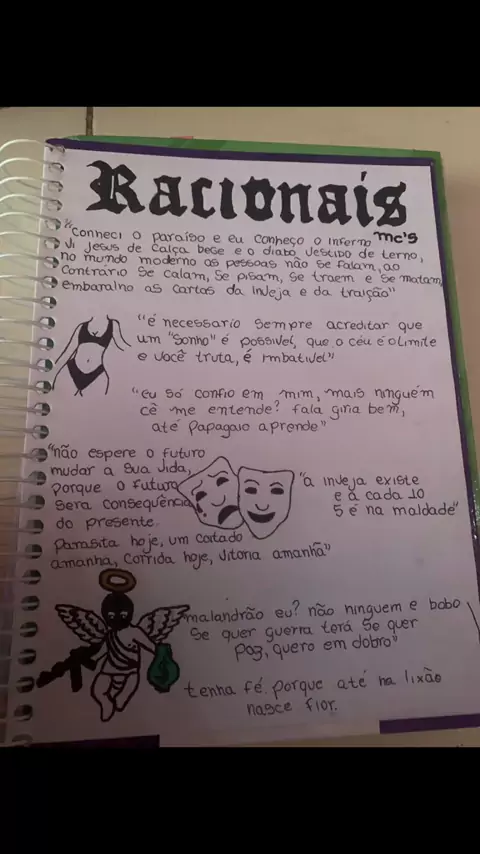 Racionais
MC'S
"Conheci o paraíso e eu conheço o inferno
Vi Jesus de calça bege e o diabo vestido de terno,
no mundo moderno as pessoas não se falam, ao
contrário se calam, se pisam, se traem e se matam
embaralho as cartas da inveja e da traição"
"é necessario sempre acreditar que
um "sonho" é possível, que o céu é o limite
e você truta, é imbatível"
"eu só confio em mim, mais ninguém
cê me entende? fala gíria bem,
até papagaio aprende"
"não espere o futuro
mudar a sua vida,
porque o futuro
sera consequência
do presente.
Parasita hoje, um coitado
amanhã, corrida hoje, vitoria amanhã"
"a inveja existe
e a cada 10
5 é na maldade"
malandrão eu? não ninguem e bobo
se quer guerra terá se quer
paz, quero em dobro"
tenha fé porque até na lixão
nasce flor.